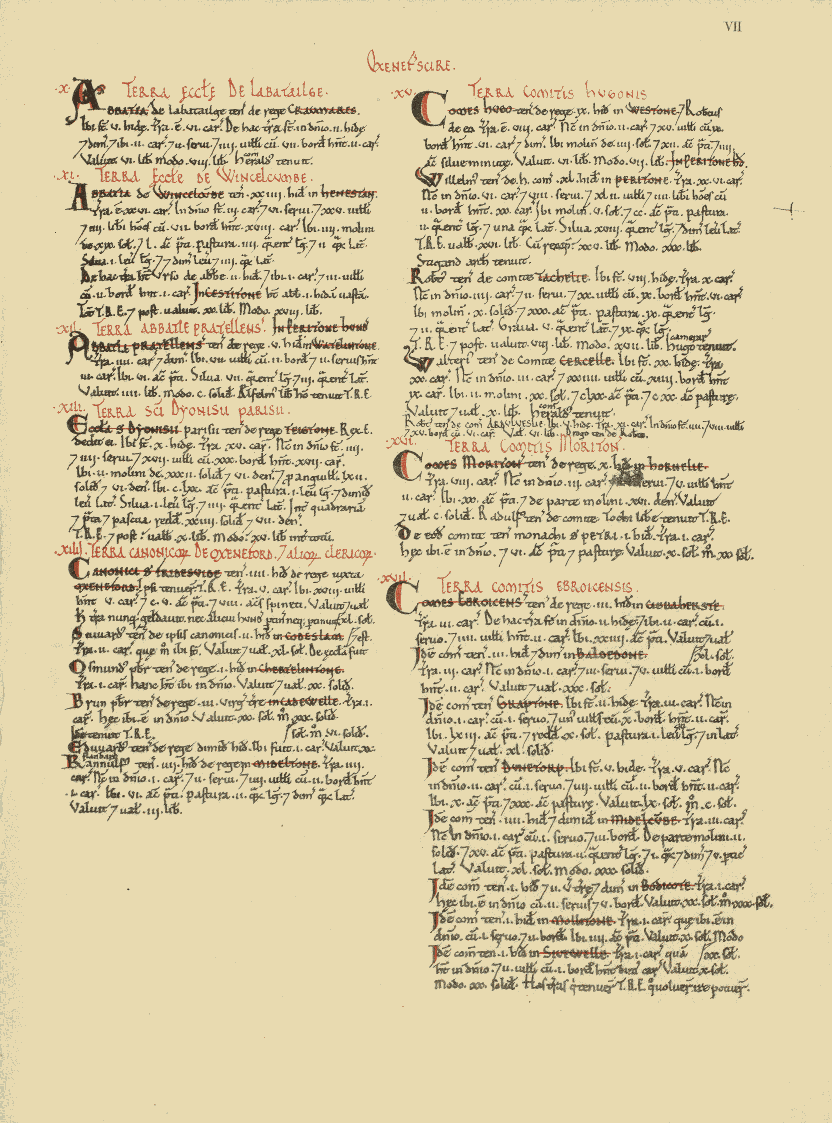 VII
Oxenefscire.
.X. TERRA ECCLE DE LABATAILGE.
ABBATIA de labatailge ten de rege CRAUMARES.
Ibi st .v. hide. Tra .ē. vi. car. De hac tra st in dnio .ii. hide
7 dim. 7 ibi .ii. car. 7 ii. serui. 7 iiii. uilli cū .vi. bord hnt .ii. car.
Valuit vi. lib. Modo. viii. lib. Herald com tenuit.
.XI. TERRA ECCLE DE WINCELCUMBE.
ABBATIA de WINCELCUBE ten .xxiiii. hid in HENESTAN.
Tra .ē. xxvi. car. In dnio st .iii. car. 7 vi. serui. 7 xxv. uilli
7 iiii. libi hoēs cū .vii. bord hnt .xiiii. car. Ibi .iiii. molini
de xx. sol. 7 l. ac pti. Pastura .iiii. qrent lg. 7 ii. qz lat.
Silua .i. leu lg. 7 dim leu 7 iiii. qz lat.
De hac tra ht Vrso de abbe .ii. hid. 7 ibi .i. car. 7 iii. uilli
cū .ii. bord hnt .i. car. In CESTITONE ht abb .i. hidā uastā.
Totū T.R.E. 7 post. ualuit .xx. lib. Modo. xviii. lib.
.XII. TERRA ABBATIE PRATELLENS. In PERITONE HUND
ABBATIA PRATELLENS ten de rege .v. hid in WATELINTONE.
Tra .iiii. car. 7 dim. Ibi .vii. uilli cū .ii. bord 7 ii. seruis hnt
.iii. car. Ibi. vi. ac pti. Silua. vii. qrent lg. 7 iii. qrent lat.
Valuit .iiii. lib. modo. c. solid. Alselin lib hō tenuit T.R.E.
.XIII. TERRA SCI DYONISII PARISII.
ECCLA S DYONISII parisii ten de rege TEIGTONE. Rex E.
dedit ei. Ibi st .x. hide. Tra .xv. car. Nc in dnio st .iiii.
7 iiii. serui. 7 xvii. uilli cū .xxx. bord hnt .xvii. car.
Ibi .ii. molini de .xxxii. solid 7 vi. den. 7 p anguill .lxii.
solid 7 vi. den. Ibi .c. lxx. ac pti. pastura .i. leu lg. 7 dimid
leu lat. Silua .i. leu lg. 7 iiii. qrent lat. Int quadraria
7 pta 7 pascua redd .xxiiii. solid 7 vii. den.
T.R.E. 7 post 7 ualt .x. lib. Modo. xx. lib int totū.
.XIIII. TERRA CANONICOR DE OXENEFORD. 7 ALIOR CLERICOR.
CANONICI S FRIDESUIDE ten .iiii. hid de rege iuxta
OXENEFORD. ipsi tenuer T.R.E. Tra .v. car. Ibi .xxviii. uilli
hnt .v. car. 7 c. v. ac pti. 7 viii. acs spineti. Valuit 7 ual
H tra nunq geldauit. nec alicui hund ptinet neq ptinuit. xl. sol.
Seuuard ten de ipsis canonicis .ii. hid in CODESLAM. est.
Tra .ii. car. que m ibi st. Valuit 7 ual .xl. sol. De eccla fuit
Osmund pbr ten de rege .i. hid in CHERTELINTONE.
Tra .i. car. hanc ht ibi in dnio. Valuit 7 ual .xx. solid.
Brun pbr ten de rege .iii. uirg tre in CADEWELLE. Tra .i.
car. Hec ibi .ē. in dnio. Valuit .xx. sol. m .xxx. solid.
Ide tenuit T.R.E. sol. m vi. solid.
Eduuard ten de rege dimid hid. Ibi fuit .i. car. Valuit .xx.
Rannulf flanbard ten .iiii. hid de rege in MIDELTONE. Tra .iiii.
car. Nc in dnio .i. car. 7 ii. serui. 7 iiii. uilli cū .ii. bord hnt
.i. car. Ibi. vi. ac pti. Pastura .ii. qz lg. 7 dim qz lat.
Valuit 7 ual .iii. lib.
.XV. TERRA COMITIS HUGONIS
COMES HUGO ten de rege .ix. hid in WESTONE. 7 Robtus
de eo. Tra .ē. viii. car. Nc in dnio .ii. car. 7 xv. uilli cū .vi.
bord hnt .vi. car. 7 dim. Ibi molin de .iiii. sol. 7 xii. ac pti. 7 iiii.
ac silue minute. Valuit. vi. lib. Modo. viii. lib. In PERITONE HD.
Willelm ten de .h. com. xl. hid in PERITONE. Tra .xx vi. car.
Nc in dnio. vi. car. 7 viii. serui. 7 xl ii. uilli. 7 iiii. libi hoēs cū
.ii. bord hnt .xx. car. Ibi molin .v. sol. 7 cc. ac pti. pastura
.ii. qrent lg. 7 una qz lat. Silua .iii. qrent lg. 7 dim leu lat.
T.R.E. ualt .xvi. lib. Cū recep. xv. lib. Modo. xxx. lib.
Stigand arch tenuit.
Robt ten de comite TACHELIE. Ibi st .viii. hide. Tra .x. car.
Nc in dnio .iiii. car. 7 ii. serui. 7 xx. uilli cū .ix. bord hnt. vi. car.
Ibi molin .x. solid. 7 xxx. ac pti. Pastura .ix. qrent lg.
7 ii. qrent lat. Silua .v. qrent lat. 7 ix. qz lg.
T.R.E. 7 post. ualuit. viii. lib. Modo. xvii. lib. Hugo camerar tenuit.
Walter ten de Comite CERCELLE. Ibi st .xx. hide. Tra
.xx. car. Nc in dnio .iii. car. 7 xxiiii. uilli cū .xiiii. bord hnt
.ix. car. Ibi .ii. molini .xx. sol. 7 clxx. ac pti. 7 cc. ac pasture.
Valuit 7 ual .x. lib. Herald com tenuit.
Robt ten de com ARDUUESLIE. Ibi .v. hide. Tra .xi. car. In dnio st .iiii. 7 viii. uilli
7 xv. bord cū .vi. car. Val. vi. lib. Drogo ten de Robto.
.XVI. TERRA COMITIS MORITON.
COMES MORITON ten de rege .x. hid in HORNELIE.
Tra .viii. car. Nc in dnio .iii. car. serui. 7 v. uilli hnt
.ii. car. Ibi .xx. ac pti. 7 de parte molini .xvi. den. Valuit
7 ual .c. solid. Radulf ten de comite. Tochi libe tenuit T.R.E.
De eod comite ten monachi S PETRI .i. hid. Tra .i. car.
Hec ibi .ē. in dnio. 7 vi. ac pti. 7 pasture. Valuit .x. sol. m xx sol.
.XVII. TERRA COMITIS EBROICENSIS.
COMES EBROICENS ten de rege .iii. hid in GRABERSTE.
Tra .vi. car. De hac tra st in dnio .ii. hide. 7 ibi .ii. car. cū .i.
seruo. 7 iiii. uilli hnt .ii. car. Ibi .xxiiii. ac pti. Valuit 7 ual
Ide com ten .iii. hid 7 dim in BALDEDONE. xl. sol.
Tra .iii. car. Nc in dnio .i. car. 7 iii. serui. 7 v. uilli cū .ii. bord
hnt .ii. car. Valuit 7 ual .xxx. sol.
Ide com ten GRAPTONE. Ibi st .ii. hide. Tra .xx. car. Nc in
dnio .i. car. cū .i. seruo. 7 un uills cū .x. bord hnt .i. car.
Ibi .lx iii. ac pti. 7 redd .x. sol. Pastura .i. leu lg. 7 in lat
Valuit 7 ual .xl. solid
Ide com ten DUNETORP. Ibi st .v. hide. Tra .v. car. Nc
in dnio .ii. car. cū .i. seruo. 7 vii. uilli cū .ii. bord hnt .ii. car.
Ibi .x. ac pti. 7 xxx. ac pasture. Valuit .lx. sol. m .c. sol.
Ide com ten .iiii. hid 7 dimid in MIDELCUBE. Tra .iii. car.
Nc in dnio .i. car. cū .i. seruo. 7 iii. bord. De parte molini .ii.
solid. 7 xv. ac pti. pastura .ii. qrent lg. 7 i. qz 7 dim 7 v. ptic
lat. Valuit .xl. sol. modo. xxx. solid.
Ide com ten .i. hid 7 ii. v tre 7 dim in BODICOTE. Tra .i. car.
Hec ibi .ē. in dnio cū .ii. seruis 7 v. bord. Valuit .xx. sol. m xxx sol.
Ide com ten .i. hid in MOLLITONE. Tra .i. car que ibi .ē. in
dnio. cū .i. seruo. 7 ii. bord. Ibi .iiii. ac pti. Valuit .x. sol. Modo
Ide com ten .i. hid in SIVEWELLE. Tra .i. car quā xx. sol.
ht in dnio. 7 ii. uilli cū .i. bord hnt dim car. Valuit .x. sol.
Modo .xx. solid. Has tras q tenuer T.R.E. quo uoluer ire potuer.